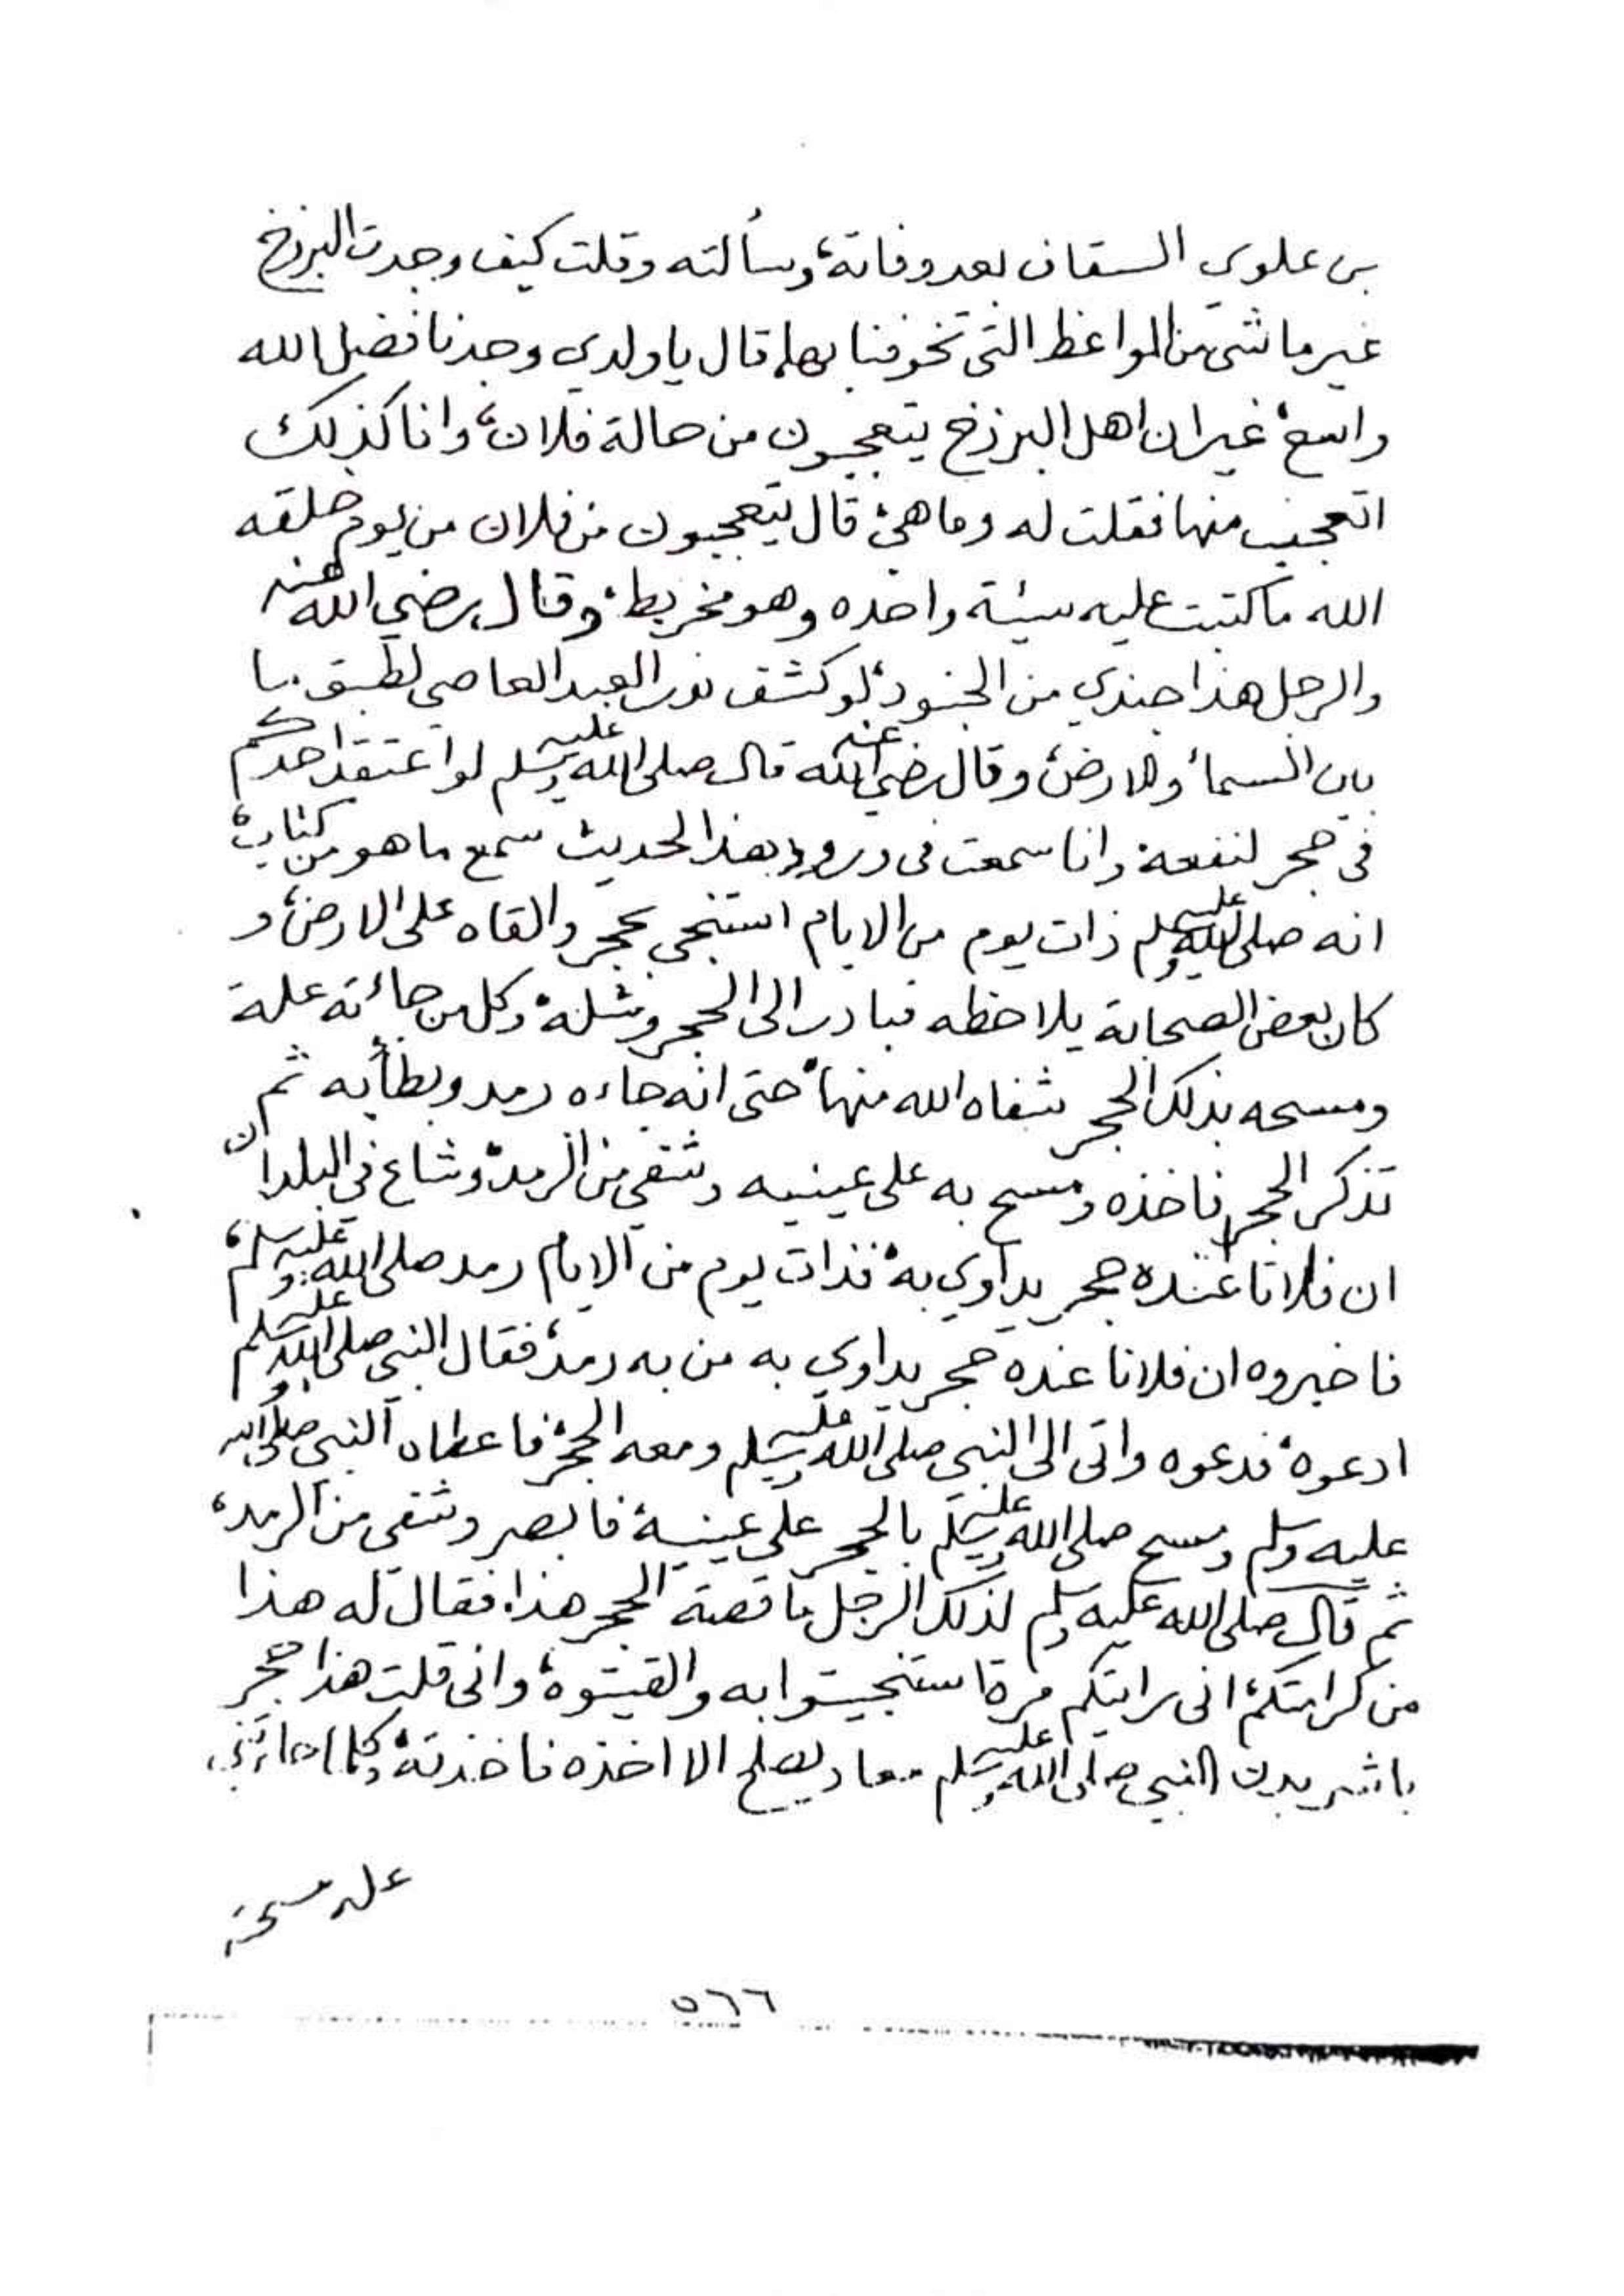 بن علوي السقاف بعد وفاته، وسألته وقلت كيف وجدت البرزخ
غير ما شي من المواعظ التي تخوفنا بها، قال يا ولدي وجدنا فضل الله
واسع، غير ان اهل البرزخ يتعجبون من حالة فلان، وانا كذلك
اتعجب منها فقلت له وما هي، قال يتعجبون من فلان من يوم خلقه
الله ما كتبت عليه سيئة واحده وهو مخربط، وقال رضي الله عنه
والرجل هذا جندي من الجنود، لو كشف نور العبد العاصي لطبق ما
بين السماء والارض، وقال رضي الله عنه قال صلى الله عليه وسلم لو اعتقد احدكم
في حجر لنفعه وانا سمعت في ورود هذا الحديث سمع ما هو من كتاب،
انه صلى الله عليه وسلم ذات يوم من الايام استنجى بحجر والقاه على الارض، و
كان بعض الصحابة يلاحظه فبادر الى الحجر وشله، وكل من جائته علة
ومسحه بذلك الحجر شفاه الله منها، حتى انه جاءه رمد وبطأ به ثم
تذكر الحجر فاخذه ومسح به على عينيه وشفي من الرمد، وشاع في البلدان
ان فلانا عنده حجر يداوي به، فذات يوم من الايام رمد صلى الله عليه وسلم،
فاخبروه ان فلانا عنده حجر يداوي به من به رمد، فقال النبي صلى الله عليه وسلم
ادعوه، فدعوه واتى الى النبي صلى الله عليه وسلم ومعه الحجر، فاعطاه النبي صلى الله
عليه وسلم ومسح صلى الله عليه وسلم بالحجر على عينيه، فابصر وشفي من الرمد،
ثم قال صلى الله عليه وسلم لذلك الرجل ما قصة الحجر هذا، فقال له هذا
من كرامتكم، اني رايتكم مرة استنجيتوا به والقيتوه، واني قلت هذا حجر
باشر بدن النبي صلى الله عليه وسلم معاد يصلح الا اخذه فاخذته، وكلما جائتني
علة مسحت
٥٦٦